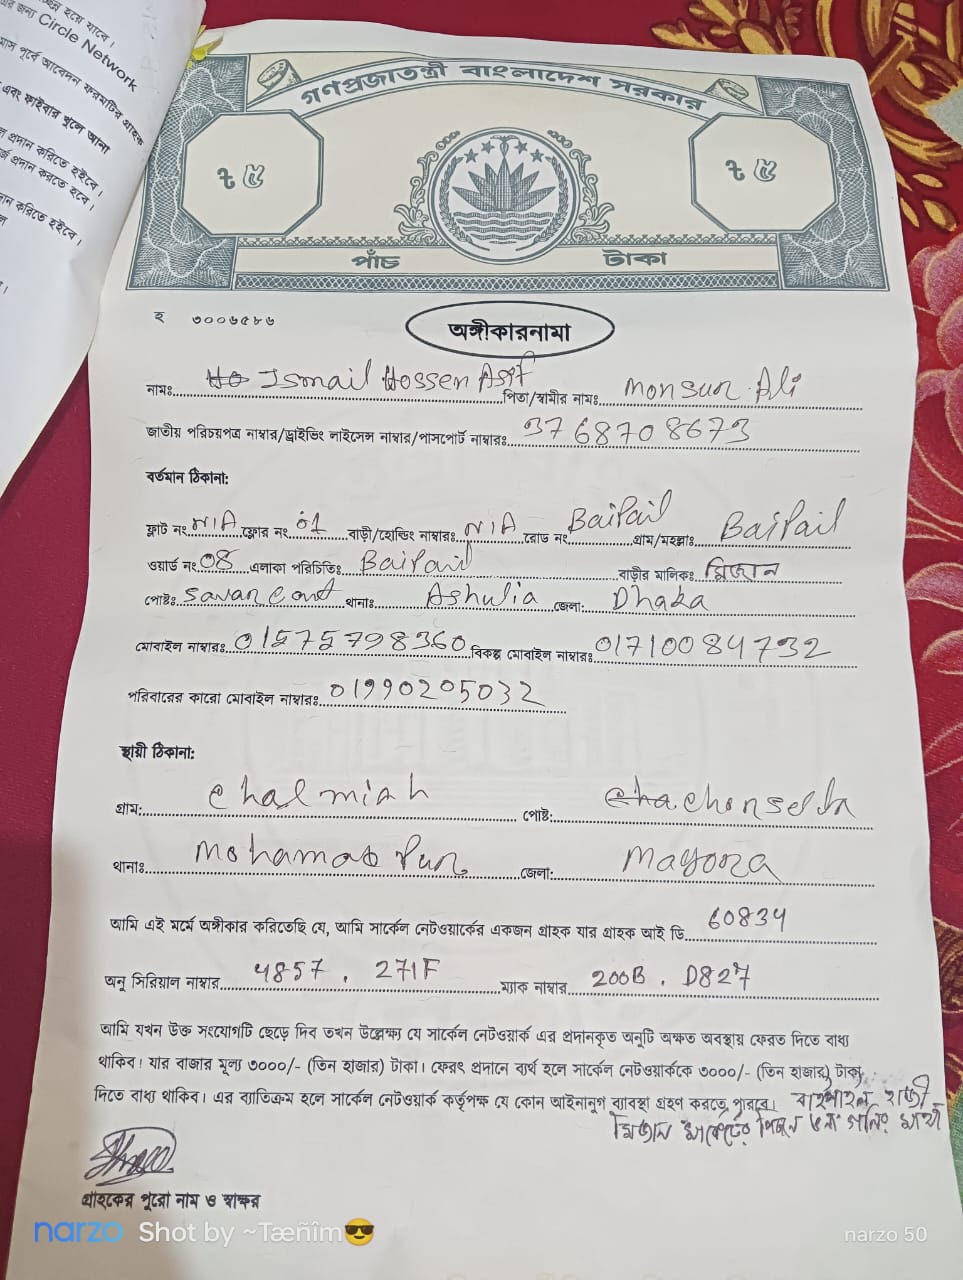 হয়ে যাবে।
জন্য Circle Network
পূর্বে আবেদন ফরমটির গ্রাহক
এবং ফাইবার খুলে আনা
প্রদান করিতে হইবে।
প্রদান করতে হবে।
করিতে হইবে।
গণপ্রজাতন্ত্রী বাংলাদেশ সরকার
৳ ৫
৳ ৫
পাঁচ টাকা
হ ৩০০৬৫৮৬
অঙ্গীকারনামা
নামঃ Ismail Hossen Asif পিতা/স্বামীর নামঃ Monsur Ali
জাতীয় পরিচয়পত্র নাম্বার/ড্রাইভিং লাইসেন্স নাম্বার/পাসপোর্ট নাম্বারঃ 3768708673
বর্তমান ঠিকানা:
ফ্লাট নংঃ N/A ফ্লোর নংঃ 01 বাড়ী/হোল্ডিং নাম্বারঃ N/A রোড নংঃ Baipail গ্রাম/মহল্লাঃ Baipail
ওয়ার্ড নংঃ 08 এলাকা পরিচিতিঃ Baipail বাড়ীর মালিকঃ মিজান
পোষ্টঃ Savar Cant থানাঃ Ashulia জেলা: Dhaka
মোবাইল নাম্বারঃ 01575798360 বিকল্প মোবাইল নাম্বারঃ 01710084732
পরিবারের কারো মোবাইল নাম্বারঃ 01990205032
স্থায়ী ঠিকানা:
গ্রাম: Chalmiah পোষ্ট:
থানাঃ Mohamadpur জেলা: Magora
আমি এই মর্মে অঙ্গীকার করিতেছি যে, আমি সার্কেল নেটওয়ার্কের একজন গ্রাহক যার গ্রাহক আই ডি 60834
অনু সিরিয়াল নাম্বার 4857 . 271F ম্যাক নাম্বার 200B . D827
আমি যখন উক্ত সংযোগটি ছেড়ে দিব তখন উল্লেক্ষ্য যে সার্কেল নেটওয়ার্ক এর প্রদানকৃত অনুটি অক্ষত অবস্থায় ফেরত দিতে বাধ্য
থাকিব। যার বাজার মূল্য ৩০০০/- (তিন হাজার) টাকা। ফেরৎ প্রদানে ব্যর্থ হলে সার্কেল নেটওয়ার্ককে ৩০০০/- (তিন হাজার) টাকা
দিতে বাধ্য থাকিব। এর ব্যাতিক্রম হলে সার্কেল নেটওয়ার্ক কর্তৃপক্ষ যে কোন আইনানুগ ব্যাবস্থা গ্রহণ করতে পারবে।
মিজান মার্কেটের পিছনে
গ্রাহকের পুরো নাম ও স্বাক্ষর
narzo Shot by ~Tæñîm😎 narzo 50